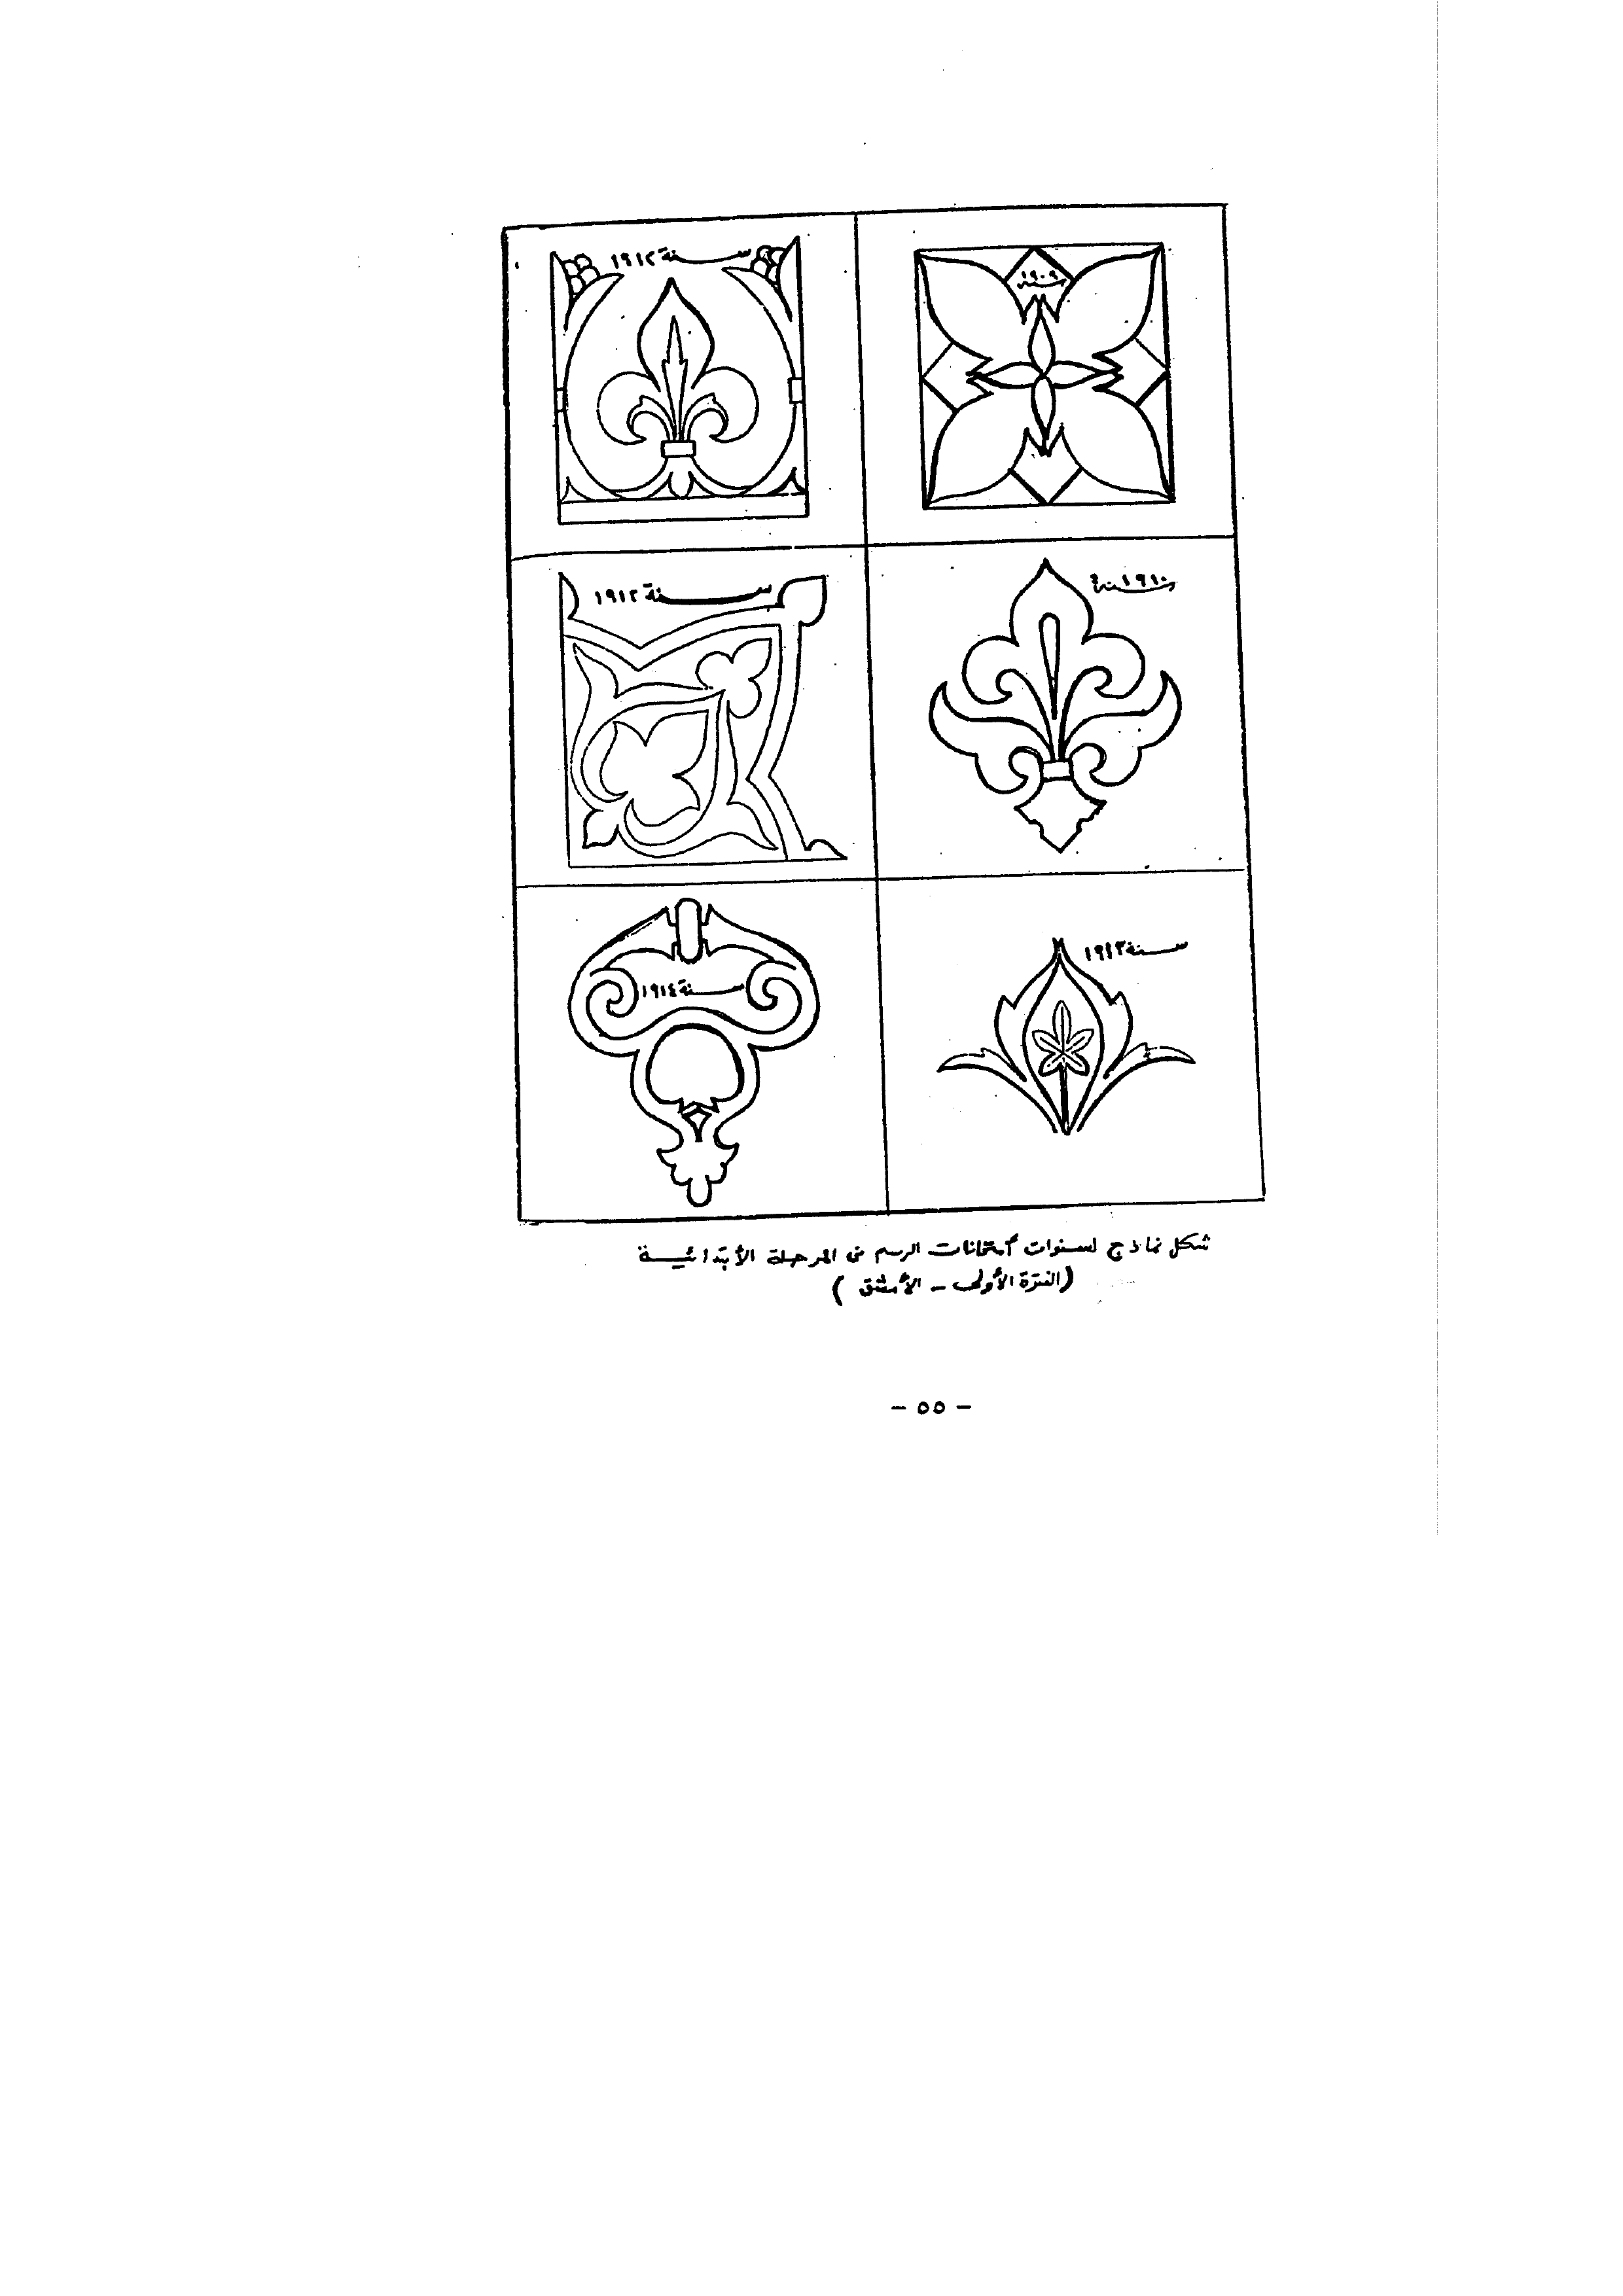 سنة ١٩٠٩
سنة ١٩١٢
سنة ١٩١٠
سنة ١٩١٢
سنة ١٩١٣
سنة ١٩١٤
شكل نماذج لسنوات امتحانات الرسم فى المرحلة الأبتدائية
(الفترة الأولى - الأمشق)
- ٥٥ -